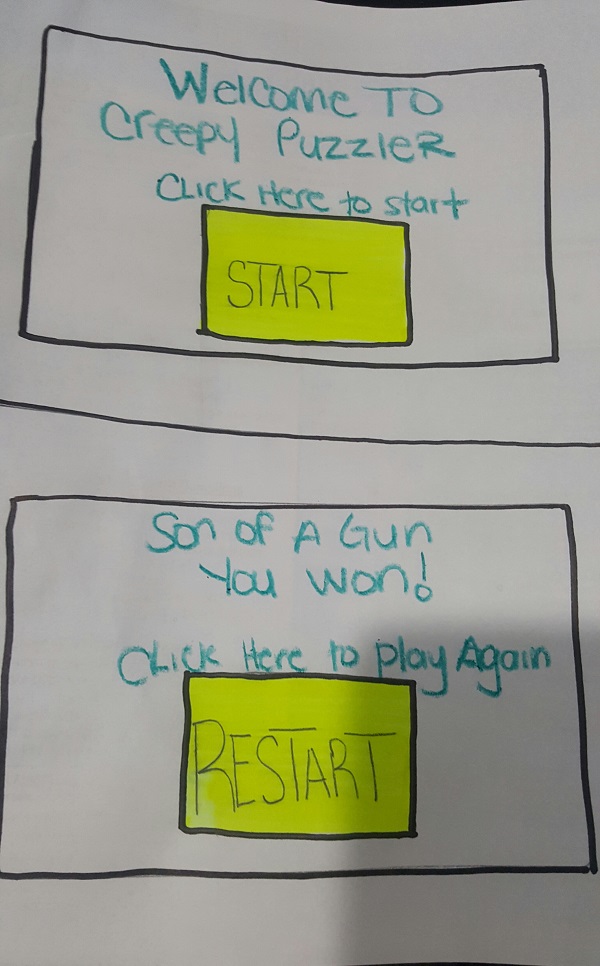 Welcome TO
Creepy PuzzleR
CLick Here to start
START
Son of A Gun
You won!
CLick Here to play Again
RESTART